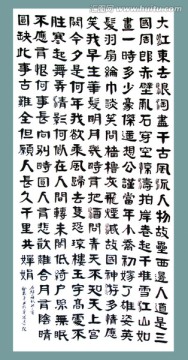 大江東去浪淘盡千古風流人物故壘西邊人道是三
國周郎赤壁亂石穿空驚濤拍岸卷起千堆雪江山如
畫一時多少豪傑遥想公瑾當年小喬初嫁了雄姿英
髮羽扇綸巾談笑間檣櫓灰飛煙滅故國神游多情應
笑我早生華髮明月幾時有把酒問青天不知天上宮
闕今夕是何年我欲乘風歸去又恐瓊樓玉宇高處不
勝寒起舞弄清影何似在人間轉朱閣低綺户照無眠
不應有恨何事長向别時圓人有悲歡離合月有陰晴
圓缺此事古難全但願人長久千里共嬋娟